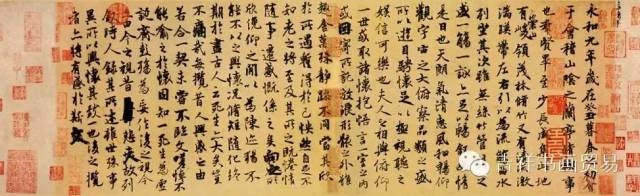 永和九年歲在癸丑暮春之初會
于會稽山陰之蘭亭脩稧事
也群賢畢至少長咸集此地
有崇山峻領茂林脩竹又有清流激
湍暎帶左右引以為流觴曲水
列坐其次雖無絲竹管弦之
盛一觴一詠亦足以暢敘幽情
是日也天朗氣清惠風和暢仰
觀宇宙之大俯察品類之盛
所以遊目騁懷足以極視聽之
娛信可樂也夫人之相與俯仰
一世或取諸懷抱悟言一室之內
或因寄所託放浪形骸之外雖
趣舍萬殊靜躁不同當其欣
於所遇蹔得於己怏然自足不
知老之將至及其所之既惓情
隨事遷感慨係之矣向之所
欣俛仰之閒以為陳迹猶不
能不以之興懷況脩短隨化終
期於盡古人云死生亦大矣豈
不痛哉每攬昔人興感之由
若合一契未嘗不臨文嗟悼不
能喻之於懷固知一死生為虛
誕齊彭殤為妄作後之視今
亦由今之視昔悲夫故列
敘時人錄其所述雖世殊事
異所以興懷其致一也後之攬
者亦將有感於斯
吉祥书画贸易